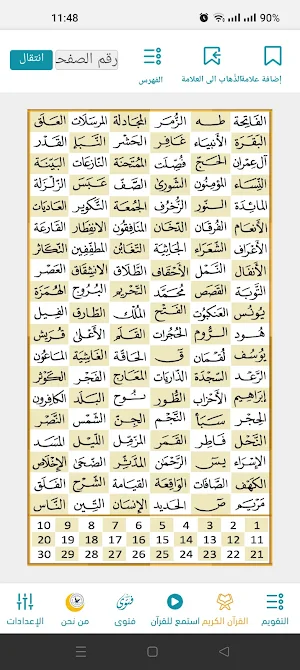 11:48 90%
رقم الصفحة انتقال
إضافة علامة الذهاب الى العلامة الفهرس
الفاتحة طه الزمر المجادلة المرسلات العلق
البقرة الأنبياء غافر الحشر النبأ القدر
آل عمران الحج فصلت الممتحنة النازعات البينة
النساء المؤمنون الشورى الصف عبس الزلزلة
المائدة النور الزخرف الجمعة التكوير العاديات
الأنعام الفرقان الدخان المنافقون الانفطار القارعة
الأعراف الشعراء الجاثية التغابن المطففين التكاثر
الأنفال النمل الأحقاف الطلاق الانشقاق العصر
التوبة القصص محمد التحريم البروج الهمزة
يونس العنكبوت الفتح الملك الطارق الفيل
هود الروم الحجرات القلم الأعلى قريش
يوسف لقمان ق الحاقة الغاشية الماعون
الرعد السجدة الذاريات المعارج الفجر الكوثر
إبراهيم الأحزاب الطور نوح البلد الكافرون
الحجر سبأ النجم الجن الشمس النصر
النحل فاطر القمر المزمل الليل المسد
الإسراء يس الرحمن المدثر الضحى الإخلاص
الكهف الصافات الواقعة القيامة الشرح الفلق
مريم ص الحديد الإنسان التين الناس
1 2 3 4 5 6 7 8 9 10
11 12 13 14 15 16 17 18 19 20
21 22 23 24 25 26 27 28 29 30
التقويم القرآن الكريم استمع للقرآن فتوى من نحن الإعدادات